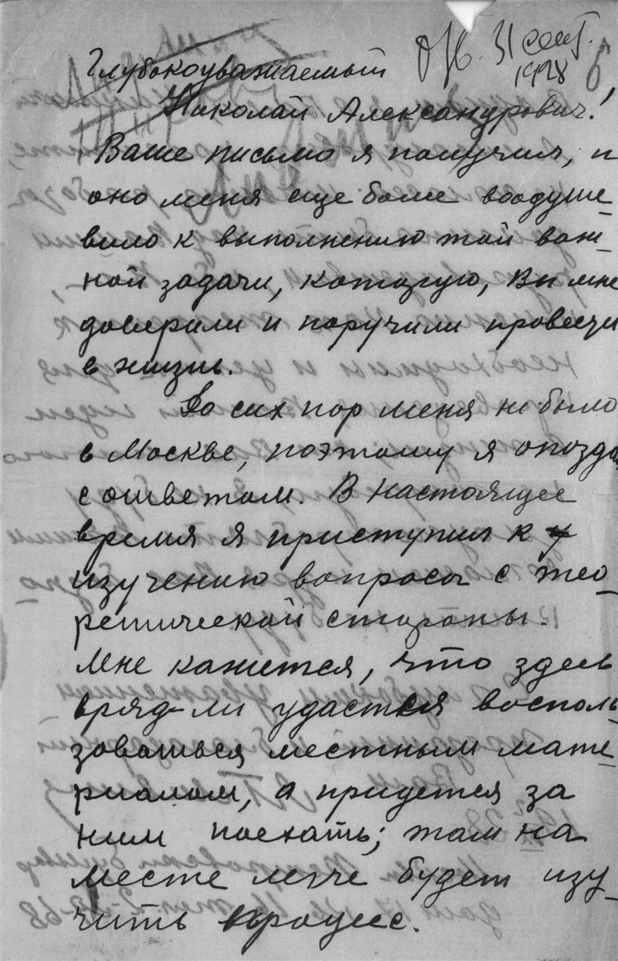 Отв. 31 сент.
1928
Глубокоуважаемый
Николай Александрович!
Ваше письмо я получил, и
оно меня еще более воодуше-
вило к выполнению той важ-
ной задачи, которую, Вы мне
доверили и поручили провести
в жизнь.
До сих пор меня не было
в Москве, поэтому я опозда
с ответом. В настоящее
время я приступил к
изучению вопроса с тео-
ретической стороны.
Мне кажется, что здесь
вряд-ли удастся восполь-
зоваться местным мате-
риалом, а придется за
ним поехать; там на
месте легче будет изу-
чить процесс.